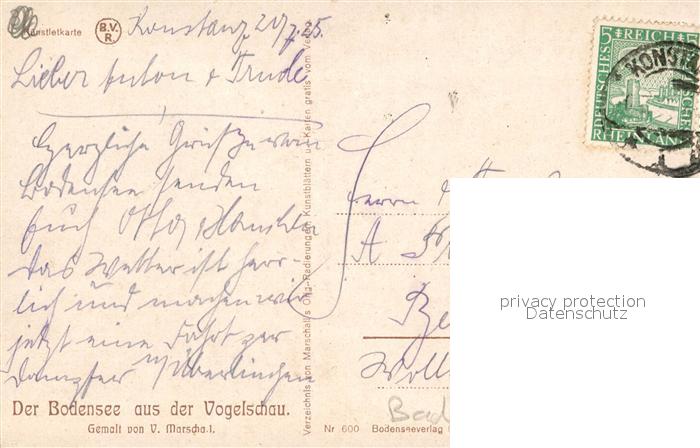 Künstlerkarte
B.V.R.
Konstanz, 20/7.25.
Lieber Anton & Trude
Herzliche Grüße vom
Bodensee senden
Euch Otto &
Das Wetter ist herr-
lich und machen wir
jetzt eine Fahrt per
Dampfer n/ Überlingen
Der Bodensee aus der Vogelschau.
Gemalt von V. Marschall.
Verzeichnis von Marschall's Orig.-Radierungen, Kunstblättern u. Karten gratis vom
5 REICH 5
DEUTSCHES
RHEINLAND
KONSTA
Herrn
A
Be
Woll
Bad
Nr 600 Bodenseeverlag
privacy protection
Datenschutz